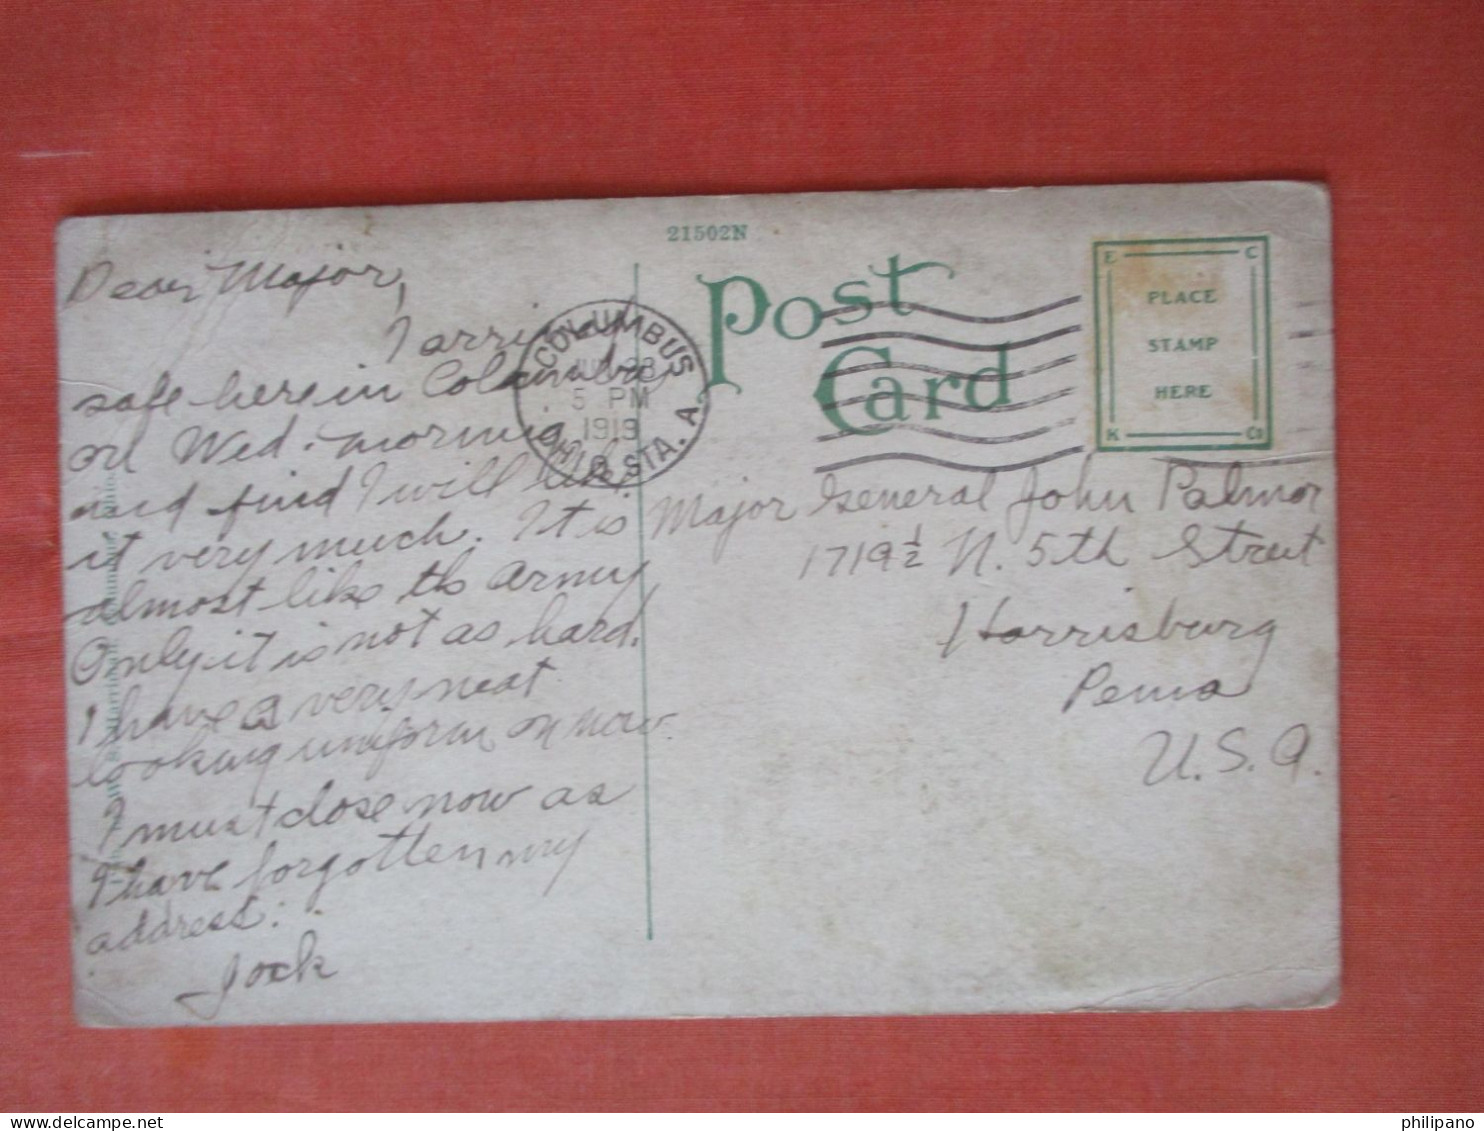 21502N
Post
Card
E C
PLACE
STAMP
HERE
K Co
COLUMBUS
23
5 PM
1919
OHIO STA. A.
Dear Major,
I arrived
safe here in Columbus
on Wed. morning
and find I will like
it very much. It is
almost like the army
Only it is not as hard.
I have a very neat
looking uniform on now.
I must close now as
I have forgotten my
address.
Jack
Major General John Palmor
1719½ N. 5th Street
Harrisburg
Penna
U.S.A.
philipano